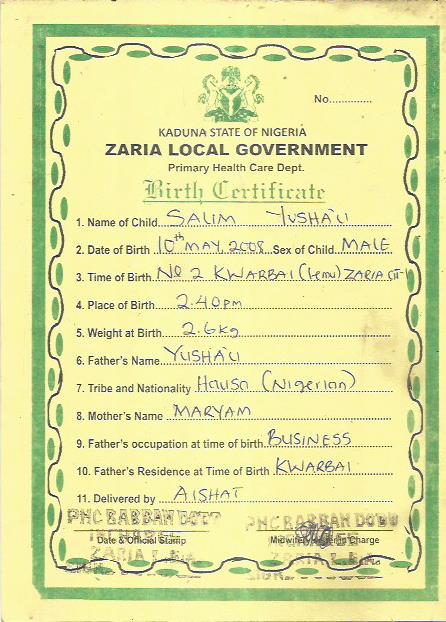 No..............
KADUNA STATE OF NIGERIA
ZARIA LOCAL GOVERNMENT
Primary Health Care Dept.
Birth Certificate
1. Name of Child SALIM YUSHA'U
2. Date of Birth 10th MAY, 2008 Sex of Child MALE
3. Time of Birth No 2 KWARBAI (Lemu) ZARIA
4. Place of Birth 2.40pm
5. Weight at Birth 2.6kg
6. Father's Name YUSHA'U
7. Tribe and Nationality Hausa (Nigerian)
8. Mother's Name MARYAM
9. Father's occupation at time of birth BUSINESS
10. Father's Residence at Time of Birth KWARBAI
11. Delivered by AISHAT
PHC BABBAN DODO PHC BABBAN DODO
Date & Official Stamp Midwife/ in Charge
ZARIA L.G.A. ZARIA L.G.A.